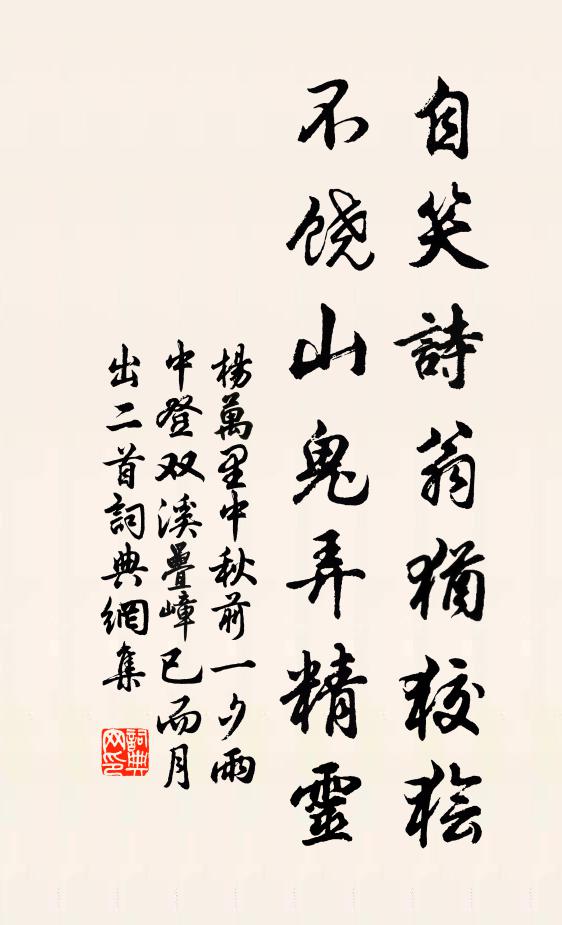 自笑詩翁猶狡獪
不饶山鬼弄精靈
楊萬里中秋前一夕雨
中登双溪疊嶂已而月
出二首詞典網集
詞典
网印